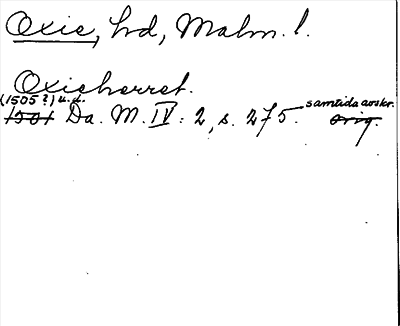 Oxie, hd, Malm. l.
Oxieherret.
(1505?) u. d. samtida avskr.
1501 Da. M. IV: 2, s. 275. orig.